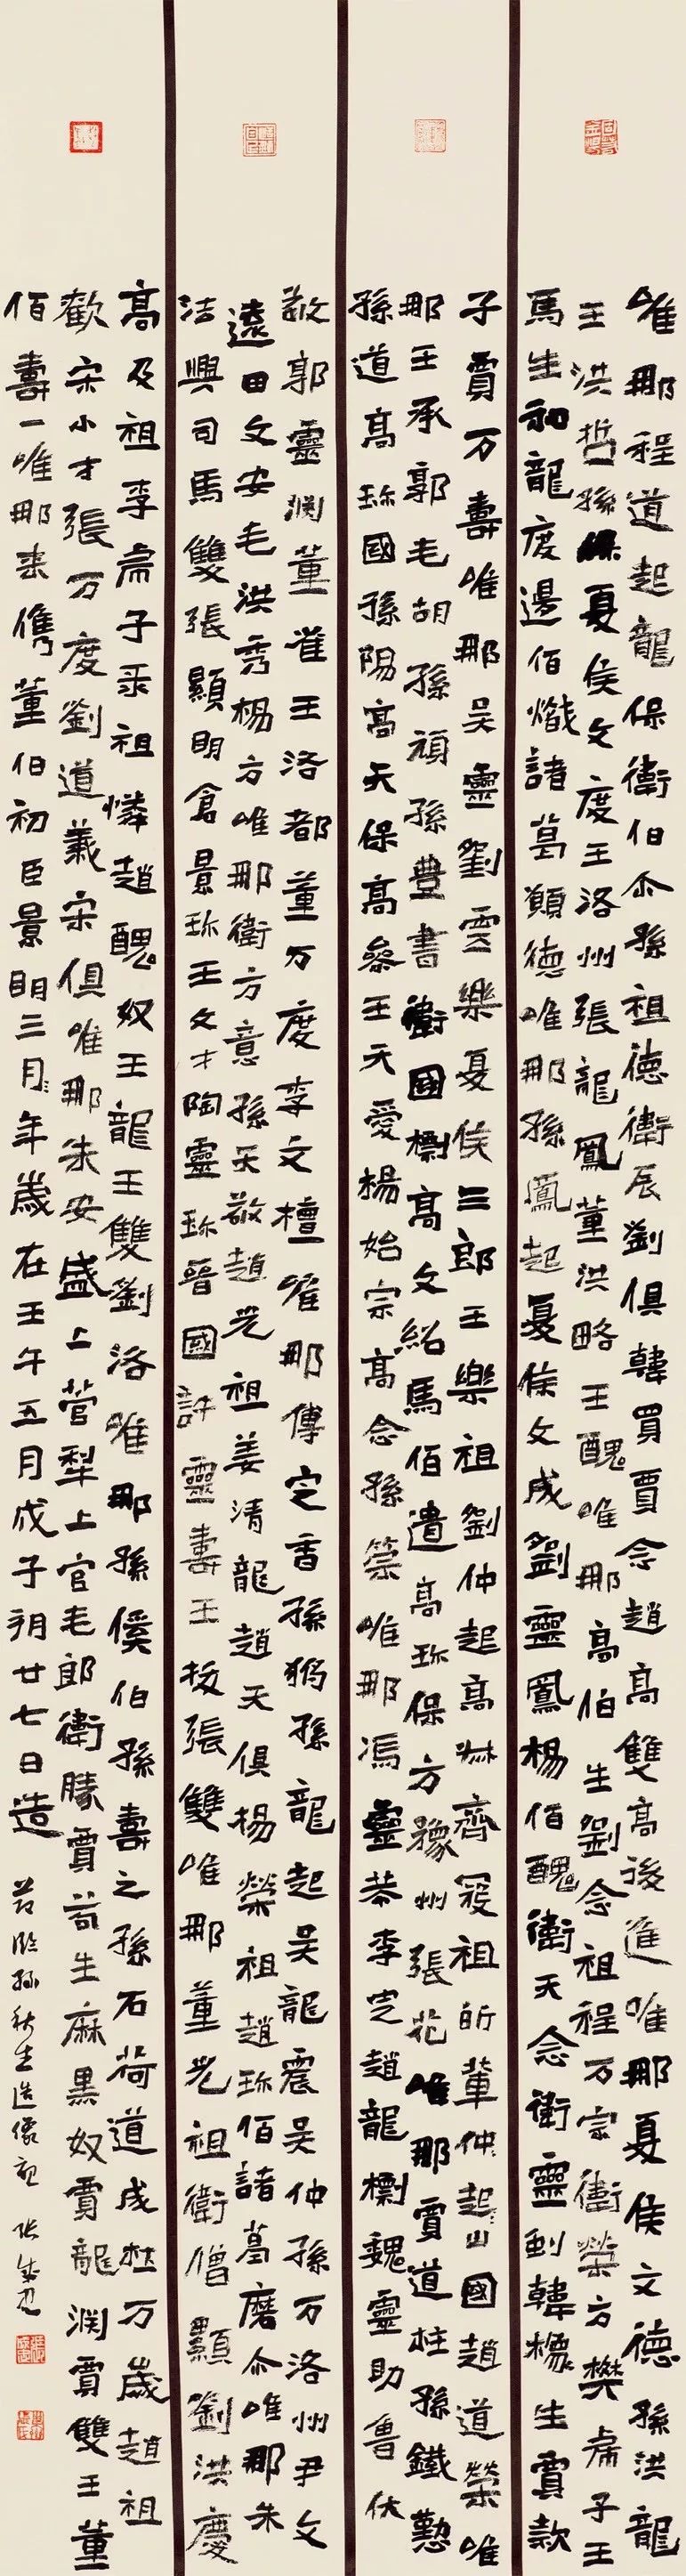 唯那程道起龍保衛伯介孫祖德衛辰劉俱韓買賈念趙高雙高後進唯那夏侯文德孫洪龍
王洪哲孫保夏侯文度王洛州張龍鳳董洪略王醜唯那高伯生劉念祖程万宗衛榮方樊虎子王
馬生和龍度邊佰熾諸葛願德唯那孫鳳起夏侯文成劉靈鳳楊佰醜衛天念衛靈劍韓樹生賈款
子賈万壽唯那吴靈劉雲樂夏侯三郎王樂祖劉仲起高齊祖輩仲起山國趙道榮唯
那王承郭毛胡孫項孫豊書衛國標高文紹馬佰遣高珎保方豫州張花唯那賈道柱孫鐵懃
孫道高珎國孫陽高天保高參王天愛楊始宗高念孫榮唯那馮靈恭李定趙龍標魏靈助魯伏
敬郭靈渊董雀王洛都董万度李文檀唯那傅定香孫豹孫龍起吴龍震吴仲孫万洛州尹文
遠田文安毛洪秀楊方唯那衛方意孫天敬趙光祖姜清龍趙天俱揚榮祖趙珎佰諸葛磨介唯那朱
沽興司馬雙張顯明倉景珎王文才陶靈珎晉國許靈壽王拔張雙唯那董光祖衛僧顯劉洪慶
高及祖李虎子乘祖憐趙醜奴王龍王雙劉洛唯那孫傒伯孫壽之孫石荷道成杜万歲趙祖
歡宋小才張万度劉道義宋俱唯那朱安盛上官犁上官毛郎衛勝賈苟生麻黑奴賈龍渊賈雙王董
佰壽一唯那來儁董伯初臣景明三月年歲在壬午五月戊子朔廿七日造
節臨孫秋生造像記